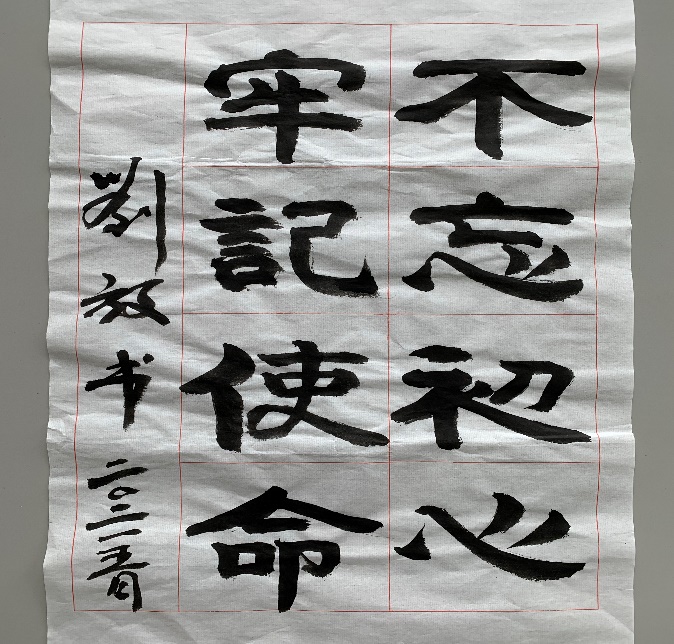 不忘初心
牢記使命
劉放书 二〇二一春